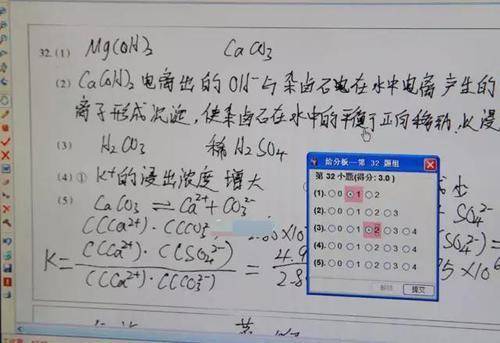 32.(1) Mg(OH)3 CaCO3
(2) Ca(OH)2电离出的OH-与杂卤石电在水中电离产生的
离子形成沉淀，使杂卤石在水中的平衡于正向移动，K浸
(3) H2CO3 稀H2SO4
(4) ① K+的浸出浓度 增大
(5) CaCO3 ⇌ Ca2+ + CO3 2- SO4 2-
C(Ca2+)·C(CO3 ×10
K= C(Ca2+)·C(SO4 2-) / C(Ca2+)·C(CO3 2-) = 4.9 / 2.8 C(SO4 2-) = 5×10 6
给分板—第 32 题组
第 32 小题(得分: 3.0)
(1). 0 1 2
(2). 0 1 2 3
(3). 0 1 2 3 4
(4). 0 1 2 3 4
(5). 0 1 2 3 4
解锁 提交